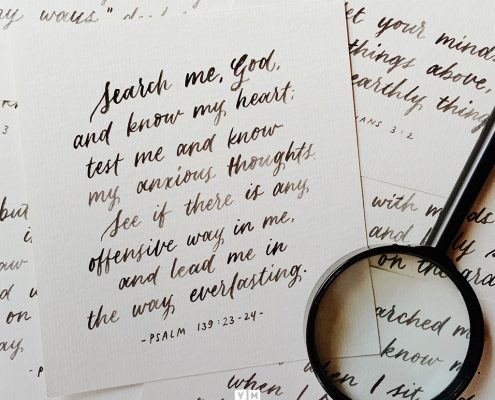 Search me, God,
and know my heart;
test me and know
my anxious thoughts.
See if there is any
offensive way in me,
and lead me in
the way everlasting.
-PSALM 139:23-24-
ways"
your minds
things above,
earthly thing
ANS 3:2
but
on
with
on the
arched me
know me
when I sit
Y M